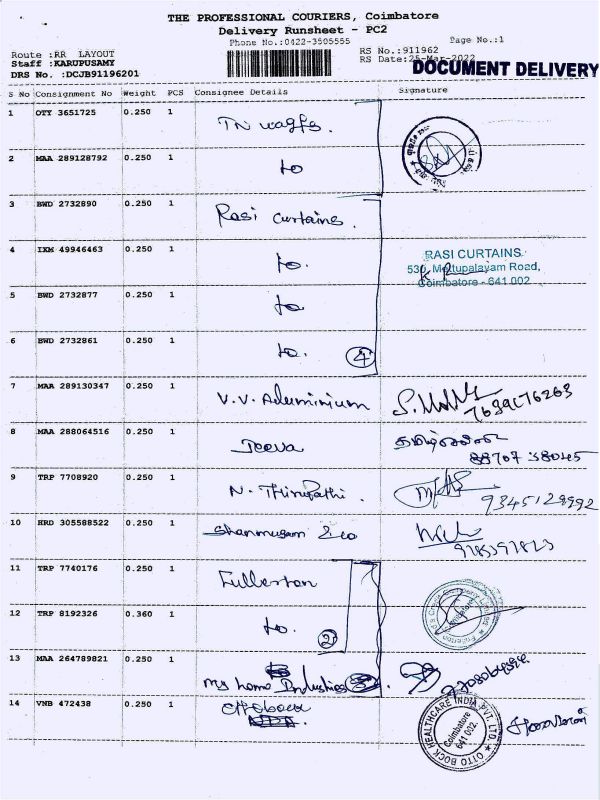 THE PROFESSIONAL COURIERS, Coimbatore
Delivery Runsheet - PC2
Phone No.:0422-3505555
Page No.:1
Route :RR LAYOUT
RS No.:911962
Staff :KARUPUSAMY
RS Date:25-Mar-2022
DRS No. :DCJB91196201
DOCUMENT DELIVERY
S No Consignment No Weight PCS Consignee Details Signature
1 OTY 3651725 0.250 1 TN
2 MAA 289128792 0.250 1 to
3 BWD 2732890 0.250 1 Rasi curtains.
4 IXM 49946463 0.250 1 to.
RASI CURTAINS
530, Mettupalayam Road,
Coimbatore - 641 002
5 BWD 2732877 0.250 1 to
6 BWD 2732861 0.250 1 to. 4
7 MAA 289130347 0.250 1 V.V. Aluminium
8 MAA 288064516 0.250 1 Jeeva
88707 38045
9 TRP 7708920 0.250 1 N. Thirupathi.
9345128992
10 HRD 305588522 0.250 1 Shanmugam & co
11 TRP 7740176 0.250 1 Fullerton
12 TRP 8192326 0.360 1 to. 2
13 MAA 264789821 0.250 1 my home Industries
14 VNB 472438 0.250 1
OTTO BOCK HEALTHCARE INDIA PVT. LTD.
Coimbatore
641 002.